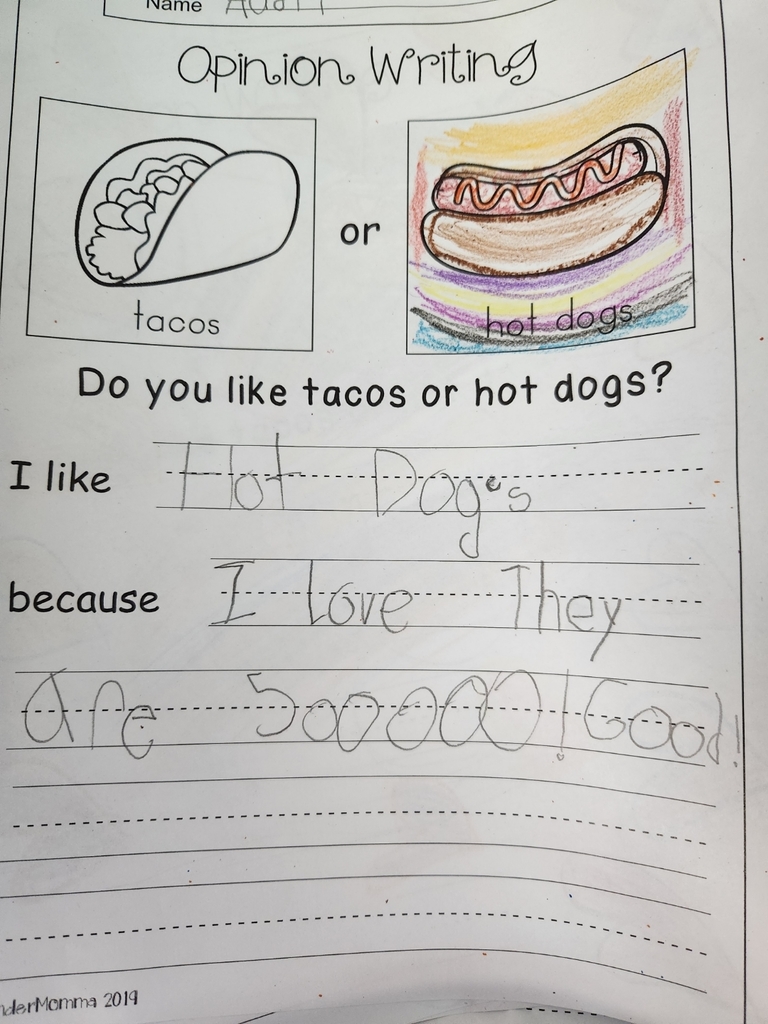 Name
Opinion Writing
or
tacos
hot dogs
Do you like tacos or hot dogs?
I like Hot Dog's
because I love They
are SooOOOO! Good!
2019